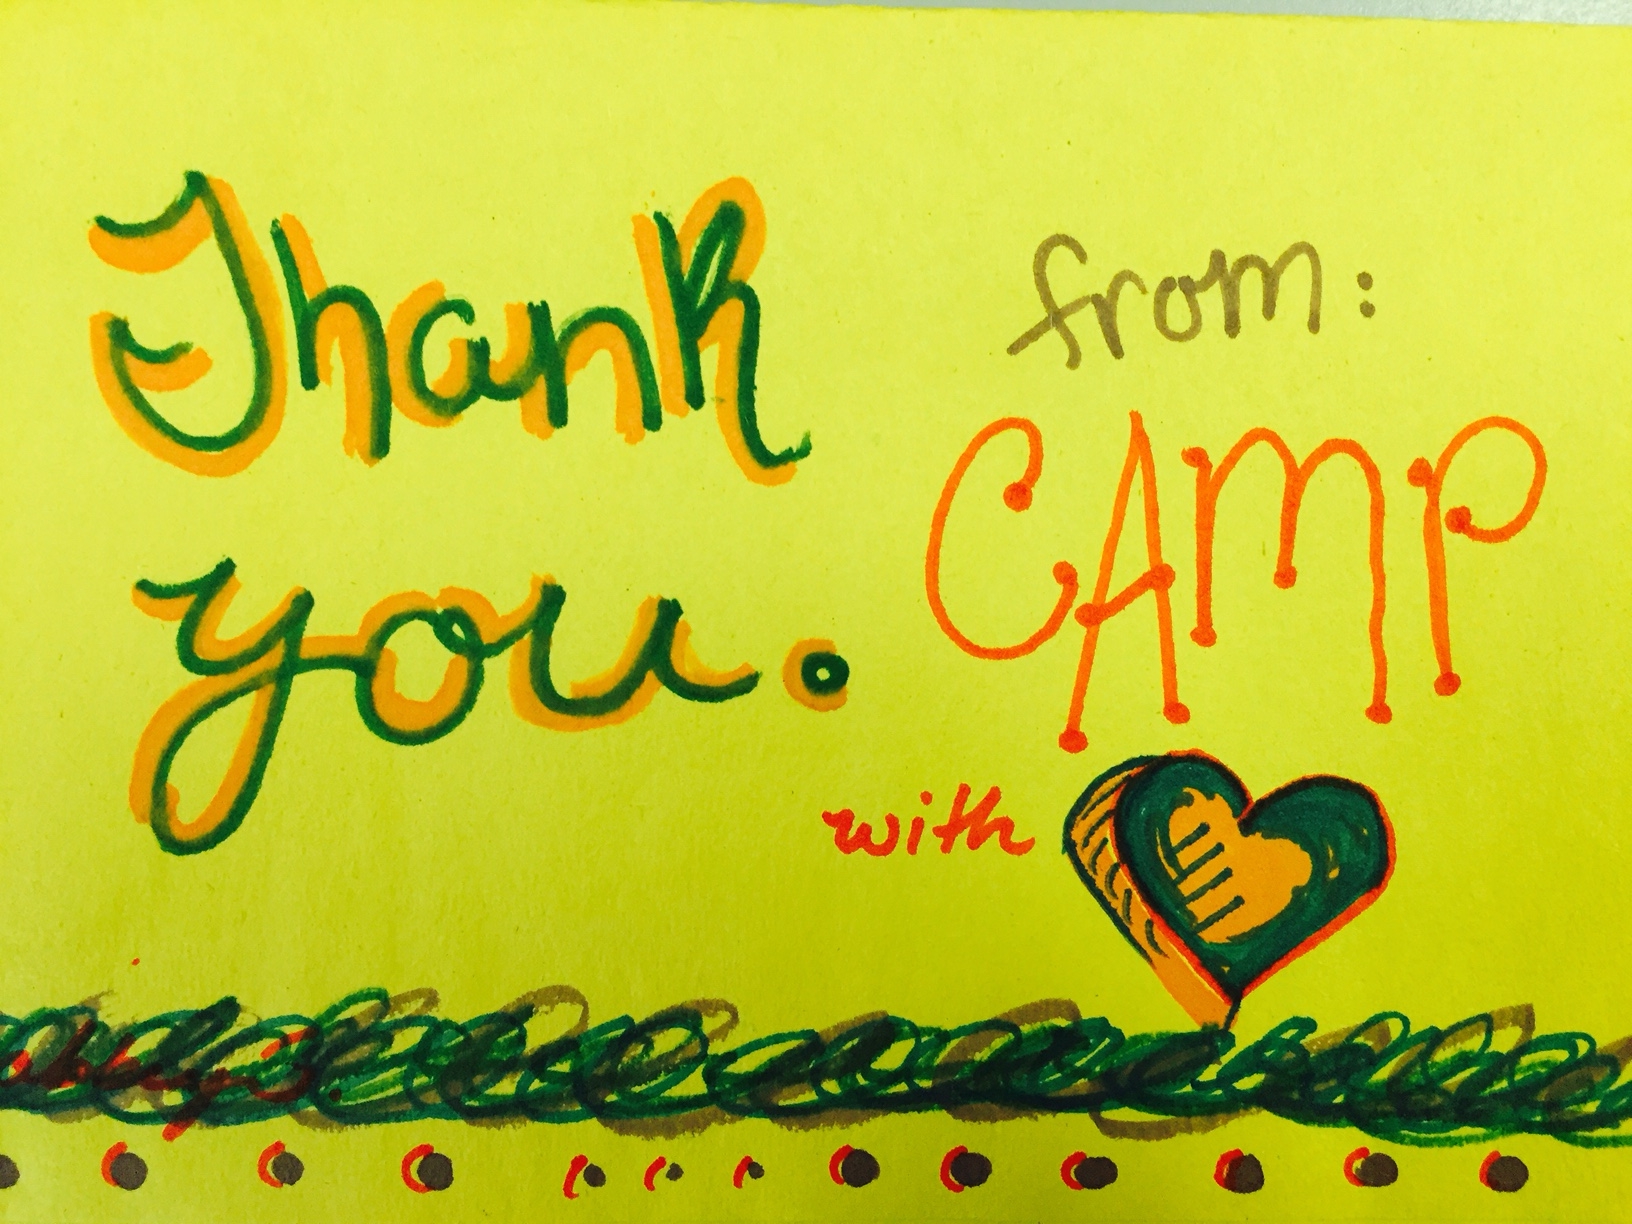 Thank
you.
from:
CAMP
with